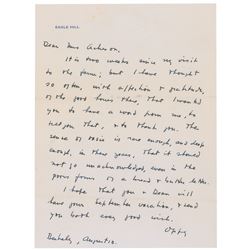 EAGLE HILL
Dear Mrs Acheson,
It is two weeks since my visit
to the farm; but I have thought
so often, with affection & gratitude,
of the good hours there, that I wanted
you to have a word from me, to
tell you that, & to thank you. The
sense of oasis is rare enough, and deep
enough, in these years, that it should
not go unacknowledged, even in the
poor form of a bread & butter letter.
I hope that you & Dean will
have your September vacation, & send
you both every good wish.
Berkeley, August 12.